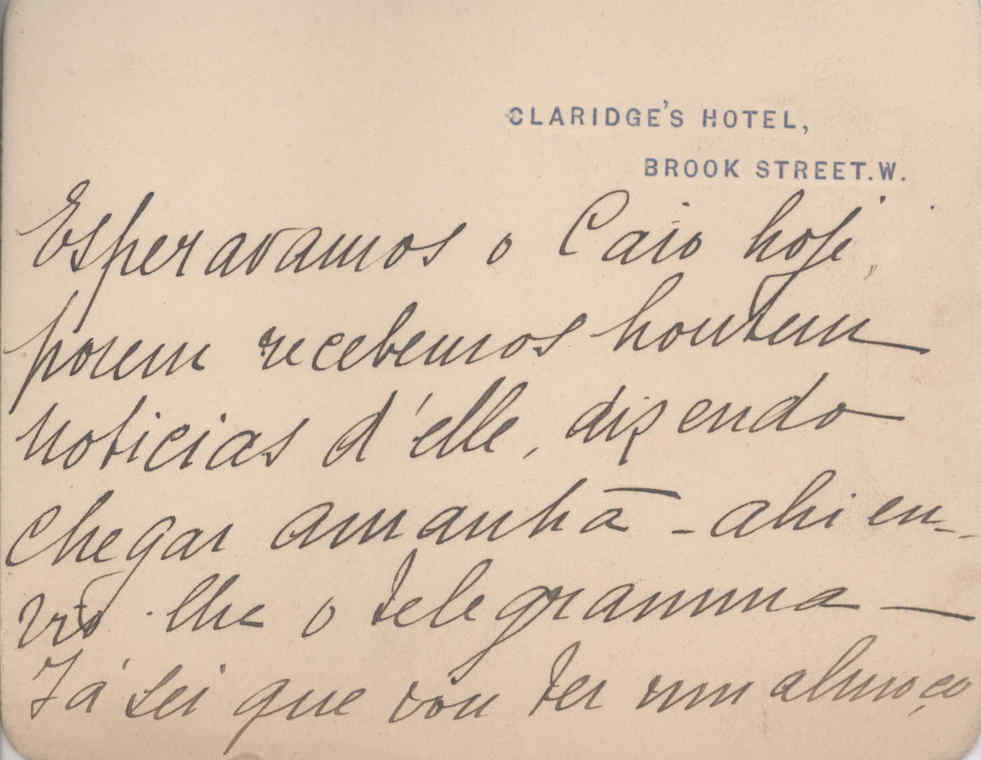 CLARIDGE'S HOTEL,
BROOK STREET.W.
Esperavamos o Caio hoje,
porem recebemos hontem
noticias d'elle, dizendo
chegar amanhã - ahi en-
vio-lhe o telegramma —
Já sei que vou ter um almoço